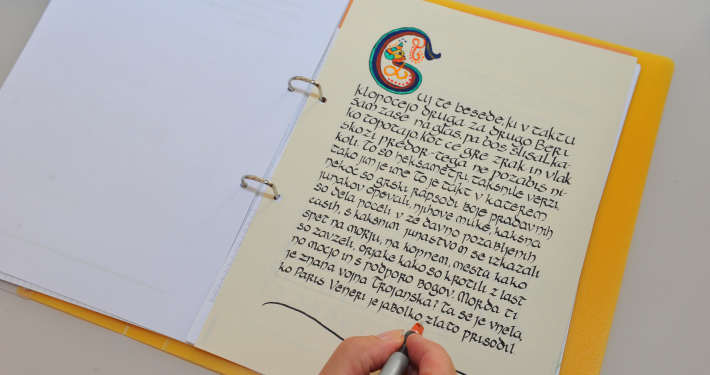 Cuj te besede, ki v taktu
klopocejo druga za drugo. Beri
sam zase, na glas, pa bos slisal, ka-
ko topotajo, kot ce gre zrak in vlak
skozi predor - tega ne pozabis ni-
koli. To so heksametri, taksni le verzi,
tako jim je ime. To je takt v katerem
nekoc so grski rapsodi boje pradavnih
junakov opevali, njihove muke, kaksna
so dela poceli v ze davno pozabljenih
casih, s kaksnim junastvom se izkazali
spet na morju, na kopnem, mesta kako
so zavzeli, orjake kako so krotili z last
no mocjo in s podporo bogov. Morda ti
je znana vojna Trojanska? Ta se je vnela,
ko Paris Veneri je jabolko zlato prisodil.